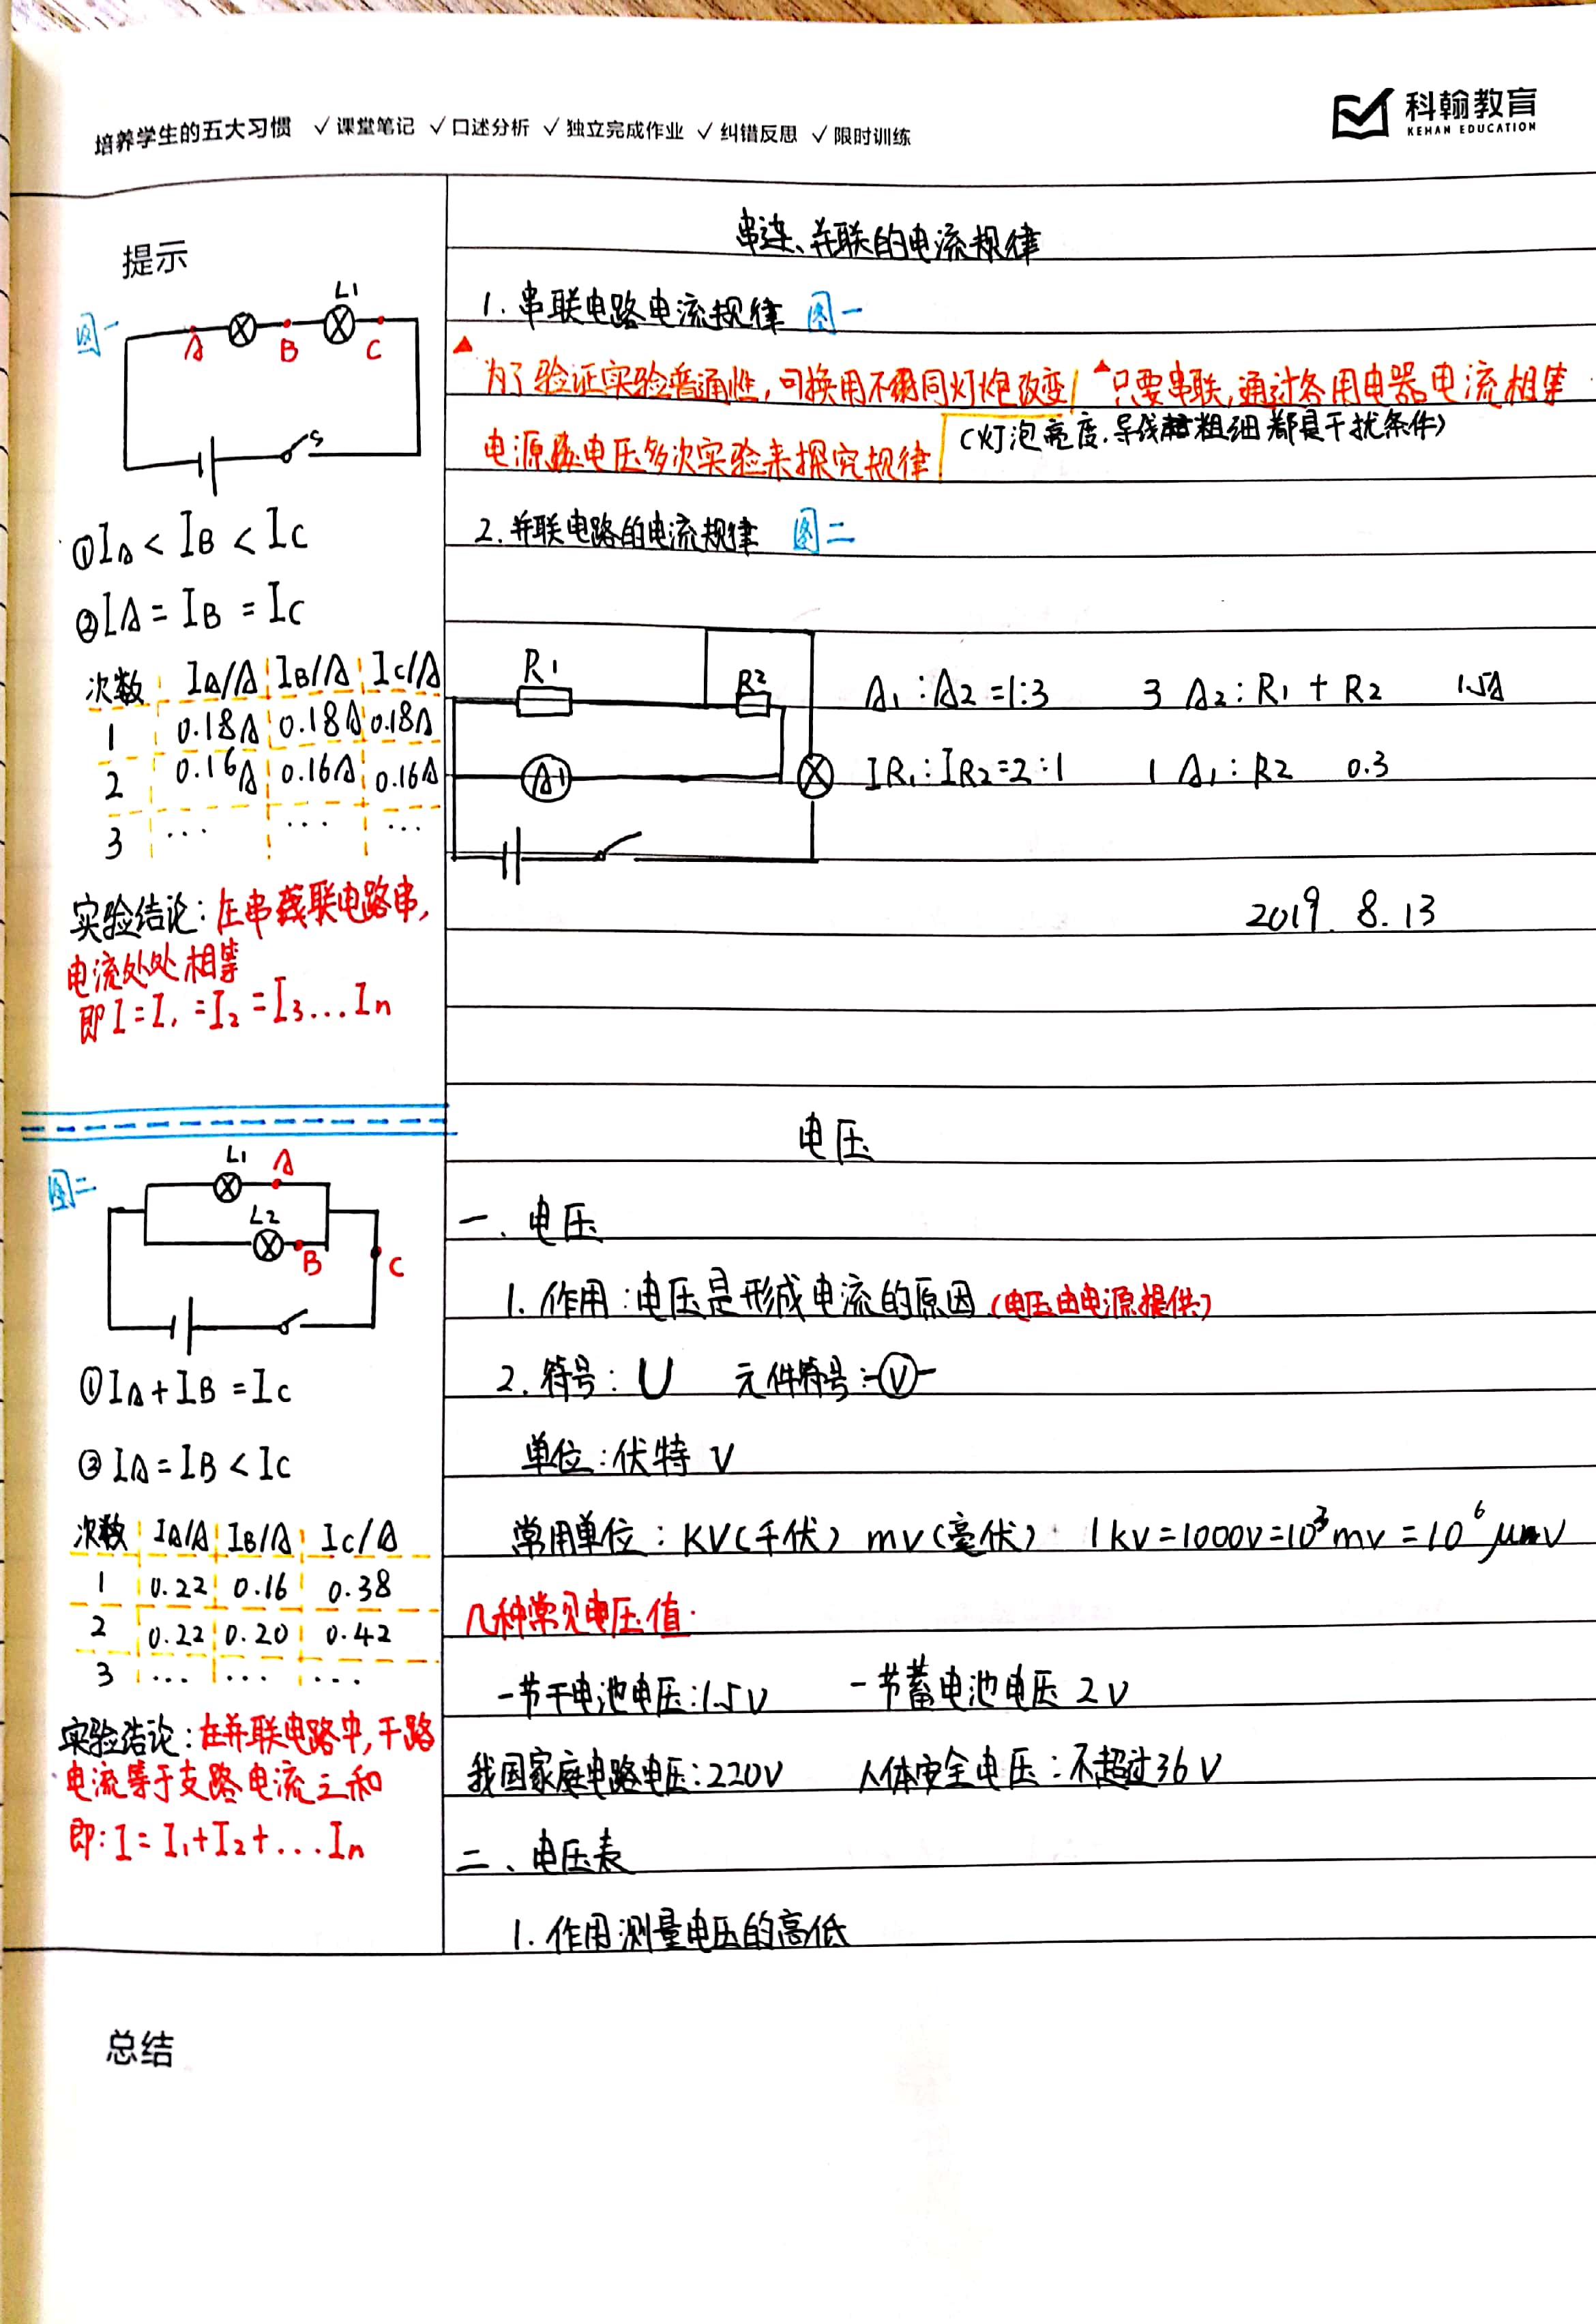 培养学生的五大习惯 ✓课堂笔记 ✓口述分析 ✓独立完成作业 ✓纠错反思 ✓限时训练
科翰教育
KEHAN EDUCATION
提示
图一
L1
A B C
S
①IA < IB < IC
②IA = IB = IC
次数 IA/A IB/A IC/A
1 0.18A 0.18A 0.18A
2 0.16A 0.16A 0.16A
3 ... ... ...
实验结论:在串联电路串,
电流处处相等
即 I = I1 = I2 = I3...In
图二
L1 A
L2
B C
①IA + IB = IC
②IA = IB < IC
次数 IA/A IB/A IC/A
1 0.22 0.16 0.38
2 0.22 0.20 0.42
3 ... ... ...
实验结论:在并联电路中,干路
电流等于支路电流之和
即:I = I1+I2+...In
串连、并联的电流规律
1. 串联电路电流规律 图一
为了验证实验普通性,可换用不同灯炮改变 只要串联,通过各用电器电流相等
电源电压多次实验来探究规律 (灯泡亮度.导线粗细都是干扰条件)
2. 并联电路的电流规律 图二
R1 R2 A1:A2=1:3 3 A2:R1 + R2 1.5A
A1 IR1:IR2=2:1 1 A1:R2 0.3
2019. 8. 13
电压
一、电压
1. 作用:电压是形成电流的原因(电压由电源提供)
2. 符号:U 元件符号:-Ⓥ-
单位:伏特 V
常用单位:KV(千伏) mV(毫伏) 1kV=1000V=10³mV=10⁶μV
几种常见电压值:
一节干电池电压:1.5V 一节蓄电池电压 2V
我国家庭电路电压:220V 人体安全电压:不超过36V
二、电压表
1. 作用测量电压的高低
总结